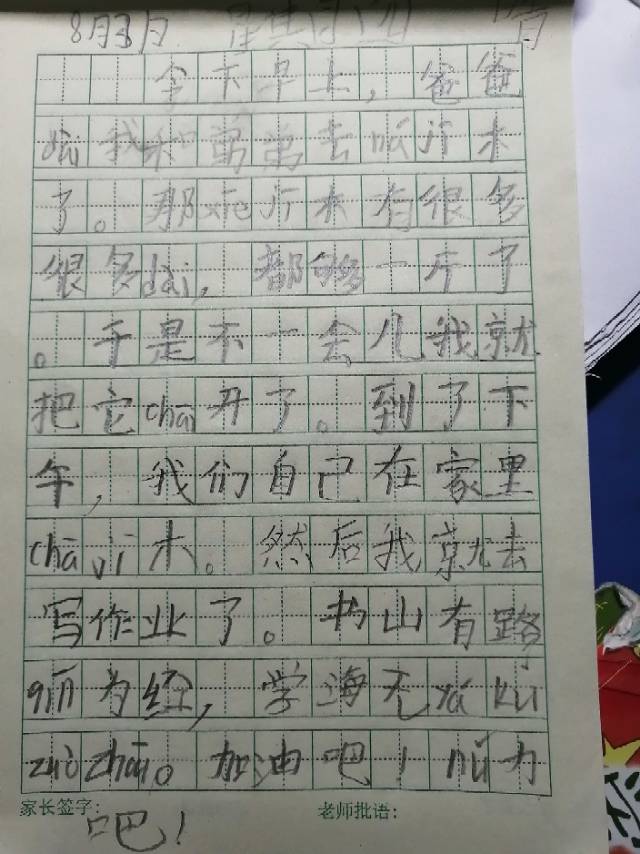 8月3日 晴
今下早上，爸爸
dài我和弟弟去ná jī木
了。那xiē jī木有很多
很多dài，都够一斤了
。于是不一会儿我就
把它chāi开了。到了下
午，我们自己在家里
chā jī木。然后我就去
写作业了。书山有路
qín为经，学海无yá kǔ
zuò zhāo。加油吧！nǔ力
家长签字： 老师批语：
吧！